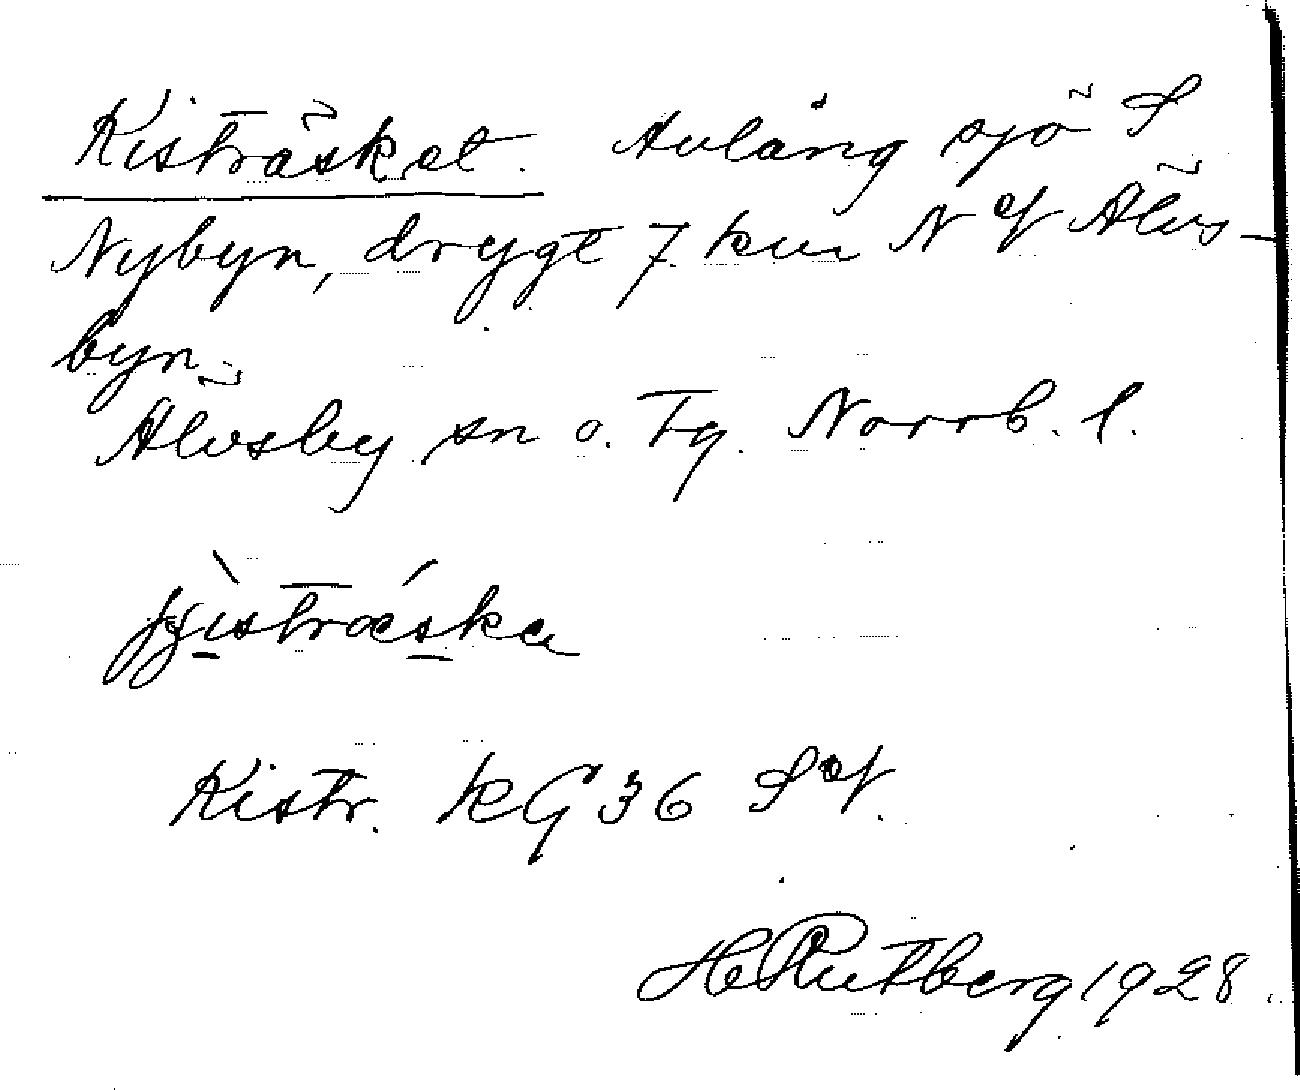 Kisträsket. Avlång sjö S
Nybyn, drygt 7 km N of Älvs-
byn.
Älvsby sn o. Tg. Norrb. l.
Kistr. KG 36 S of.
H Rutberg 1928.